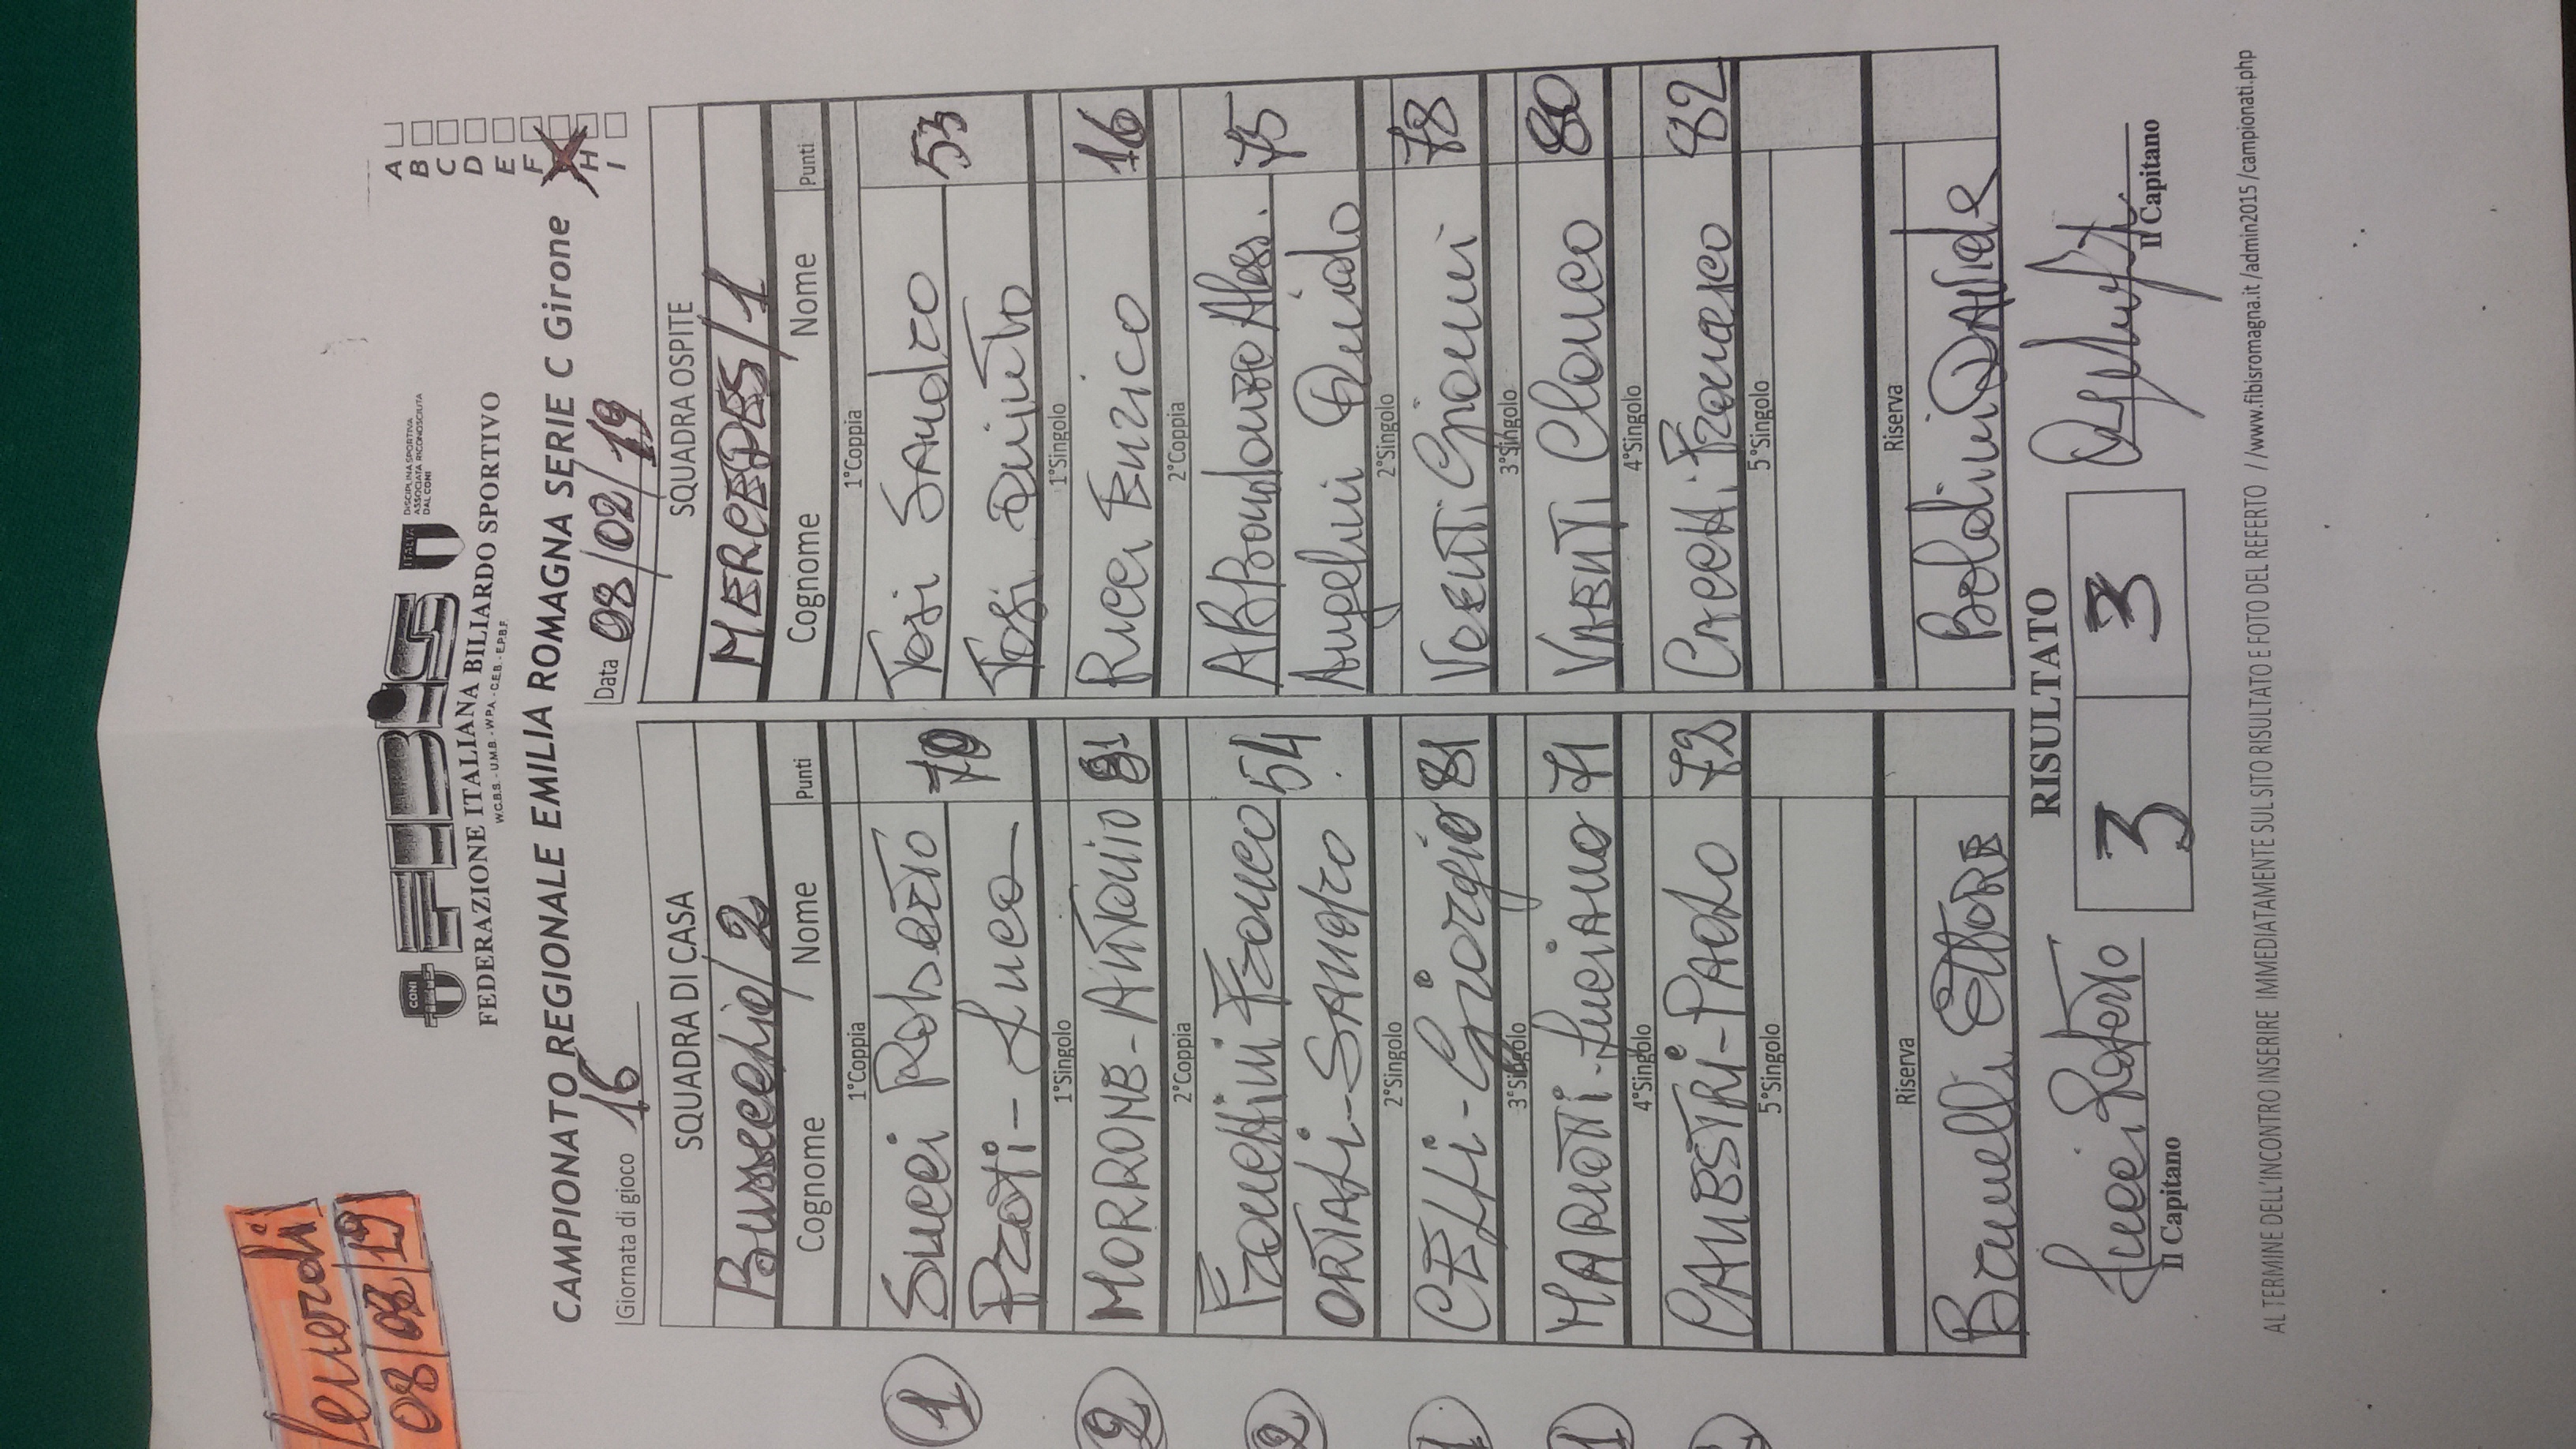 Venerdì
08/02/19
CONI
FIBiS
ITALIA
DISCIPLINA SPORTIVA
ASSOCIATA RICONOSCIUTA
DAL CONI
FEDERAZIONE ITALIANA BILIARDO SPORTIVO
W.C.B.S. - U.M.B. - W.P.A. - C.E.B. - E.P.B.F.
CAMPIONATO REGIONALE EMILIA ROMAGNA SERIE C Girone
A
B
C
D
E
F
H
I
Giornata di gioco 16
Data 08/02/19
SQUADRA DI CASA SQUADRA OSPITE
Bussecchio/2 MERCEDES/1
Cognome Nome Punti Cognome Nome Punti
1°Coppia 1°Coppia
Succi Roberto 70 Tosi SANDRO 53
Prati - Luca Tosi Quinto
1°Singolo 1°Singolo
MORRONE - ANTONIO 81 Ricci Enrico 16
2°Coppia 2°Coppia
Franchini Franco 54 ABBondanza Aless. 75
ORTALi - SANDRO Angelini Duialo
2°Singolo 2°Singolo
CELLi - Giorgio 81 VeENTi Gianni 78
3°Singolo 3°Singolo
MARIOTTi - Luciano 71 VAENTi Clauco 80
4°Singolo 4°Singolo
CAMPESTRi - PAOLO 72 CACCHi Francesco 82
5°Singolo 5°Singolo
Riserva Riserva
ETTORE Boldini DAVide
RISULTATO
3 3
Succi Roberto
Il Capitano Il Capitano
AL TERMINE DELL'INCONTRO INSERIRE IMMEDIATAMENTE SUL SITO RISULTATO E FOTO DEL REFERTO //www.fibisromagna.it/admin2015/campionati.php
1
2
2
1
1